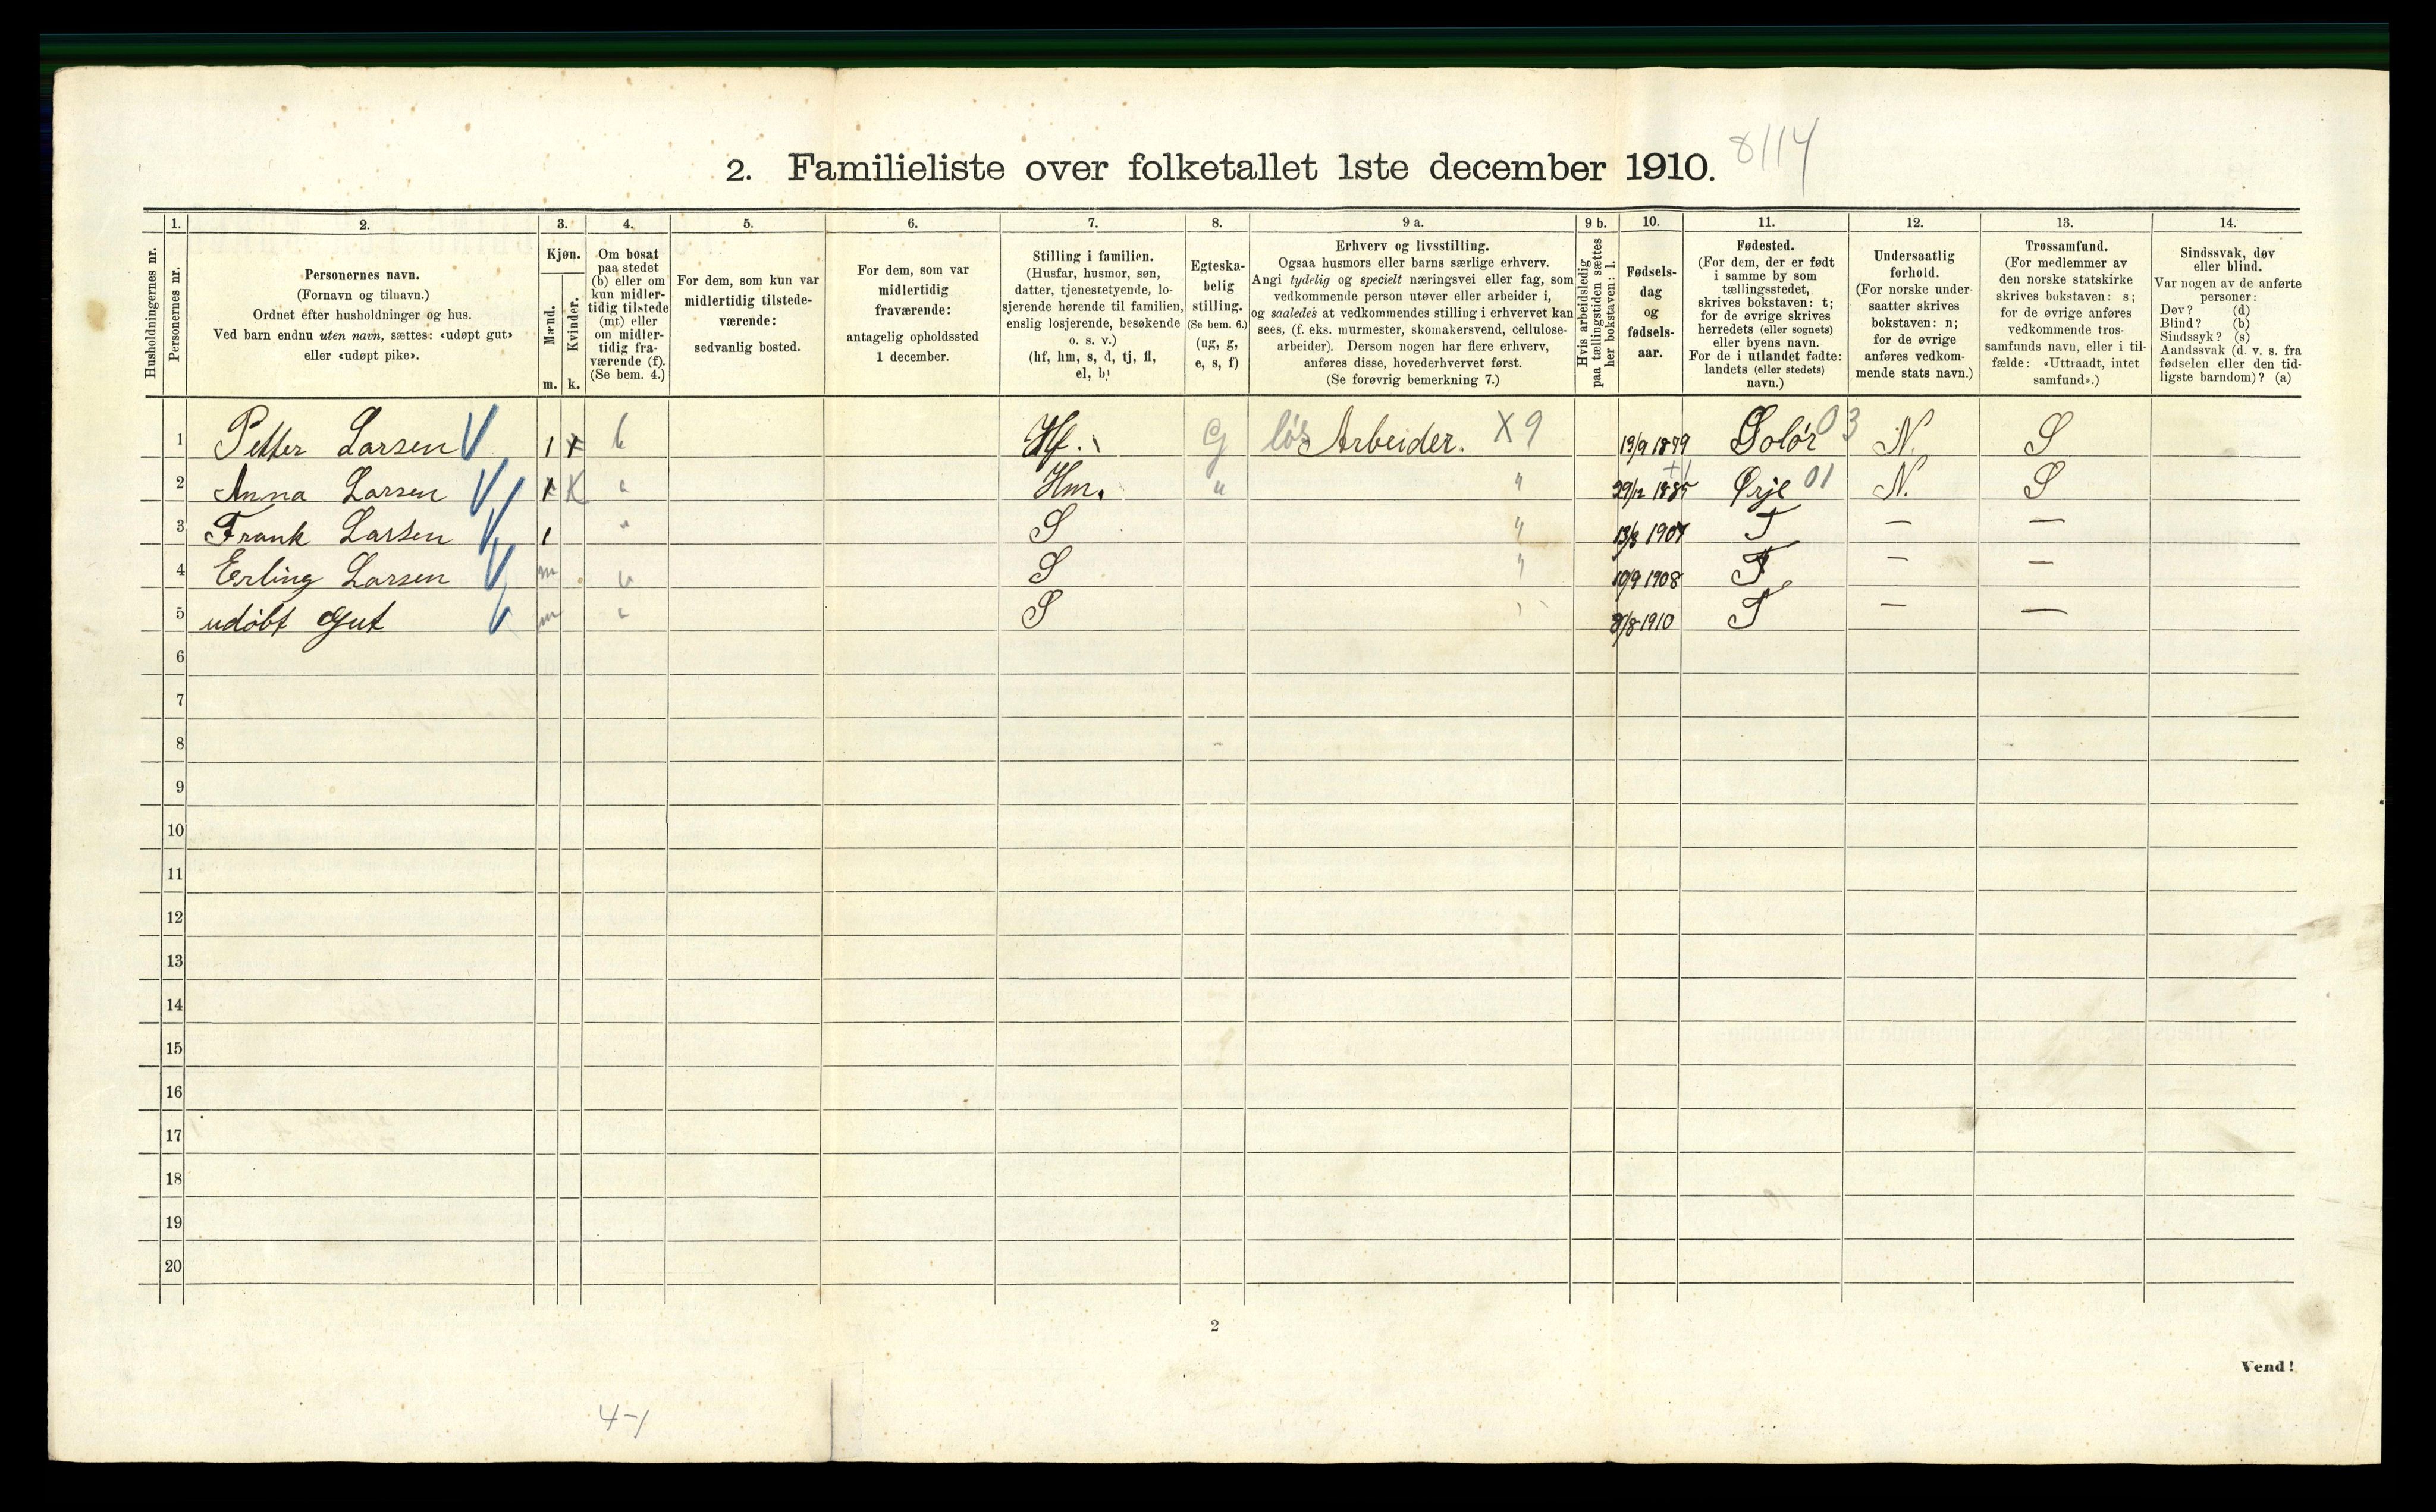 8/14
2. Familieliste over folketallet 1ste december 1910.
1. 2. 3. 4. 5. 6. 7. 8. 9 a. 9 b. 10. 11. 12. 13. 14.
Husholdningernes nr.
Personernes nr.
Personernes navn.
(Fornavn og tilnavn.)
Ordnet efter husholdninger og hus.
Ved barn endnu uten navn, sættes: «udøpt gut»
eller «udøpt pike».
Kjøn.
Mænd.
Kvinder.
m. k.
Om bosat
paa stedet
(b) eller om
kun midler-
tidig tilstede
(mt) eller
om midler-
tidig fra-
værende (f).
(Se bem. 4.)
For dem, som kun var
midlertidig tilstede-
værende:
sedvanlig bosted.
For dem, som var
midlertidig
fraværende:
antagelig opholdssted
1 december.
Stilling i familien.
(Husfar, husmor, søn,
datter, tjenestetyende, lo-
sjerende hørende til familien,
enslig losjerende, besøkende
o. s. v.)
(hf, hm, s, d, tj, fl,
el, b)
Egteska-
belig
stilling.
(Se bem. 6.)
(ug, g,
e, s, f)
Erhverv og livsstilling.
Ogsaa husmors eller barns særlige erhverv.
Angi tydelig og specielt næringsvei eller fag, som
vedkommende person utøver eller arbeider i,
og saaledes at vedkommendes stilling i erhvervet kan
sees, (f. eks. murmester, skomakersvend, cellulose-
arbeider). Dersom nogen har flere erhverv,
anføres disse, hovederhvervet først.
(Se forøvrig bemerkning 7.)
Hvis arbeidsledig
paa tællingstiden sættes
her bokstaven: l.
Fødsels-
dag
og
fødsels-
aar.
Fødested.
(For dem, der er født
i samme by som
tællingsstedet,
skrives bokstaven: t;
for de øvrige skrives
herredets (eller sognets)
eller byens navn.
For de i utlandet fødte:
landets (eller stedets)
navn.)
Undersaatlig
forhold.
(For norske under-
saatter skrives
bokstaven: n;
for de øvrige
anføres vedkom-
mende stats navn.)
Trossamfund.
(For medlemmer av
den norske statskirke
skrives bokstaven: s;
for de øvrige anføres
vedkommende tros-
samfunds navn, eller i til-
fælde: «Uttraadt, intet
samfund».)
Sindssvak, døv
eller blind.
Var nogen av de anførte
personer:
Døv? (d)
Blind? (b)
Sindssyk? (s)
Aandssvak (d. v. s. fra
fødselen eller den tid-
ligste barndom)? (a)
1 Petter Larsen V 1 b Hf. G løs Arbeider. X 9 13/9 1879 Solør 03 N. S
2 Anna Larsen V K " Hm. " " 29/12 1885 Ørje 01 N. S
3 Frank Larsen V 1 " S " 13/8 1907 T — —
4 Erling Larsen V m " S " 10/9 1908 T — —
5 udøbt Gut V m " S 8/8 1910 T — —
6
7
8
9
10
11
12
13
14
15
16
17
18
19
20
2
Vend!
4-1